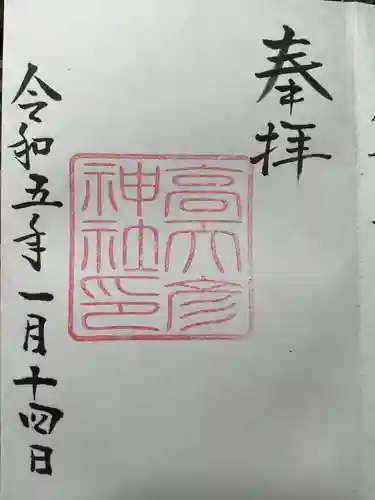 奉拝
高六彦
神社印
令和五年一月十四日